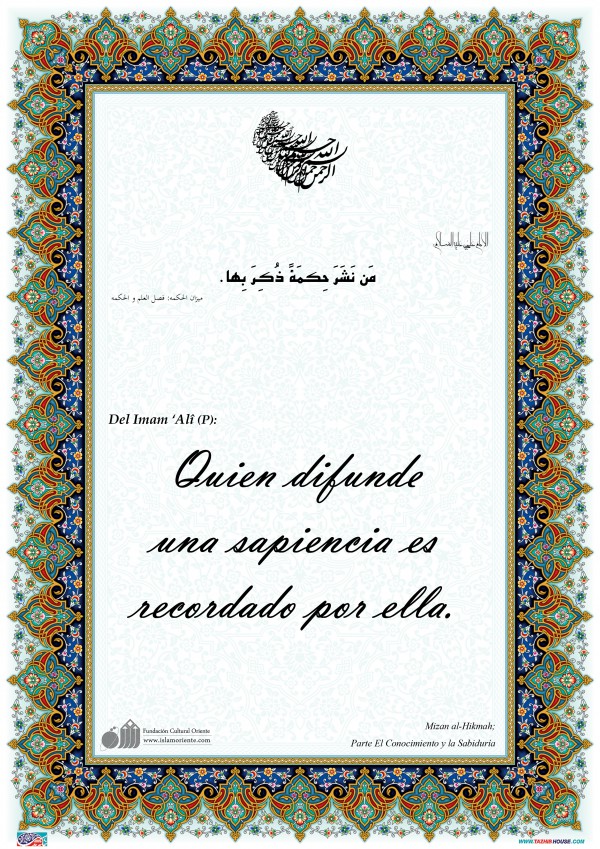 بسم الله الرحمن الرحيم
الإمام علي عليه السلام:
مَن نَشَرَ حِكمَةً ذُكِرَ بِها.
ميزان الحكمه: فصل العلم و الحكمه
Del Imam ‘Alî (P):
Quien difunde
una sapiencia es
recordado por ella.
Mizan al-Hikmah;
Parte El Conocimiento y la Sabiduría
Fundación Cultural Oriente
www.islamoriente.com
WWW.TAZHIBHOUSE.COM